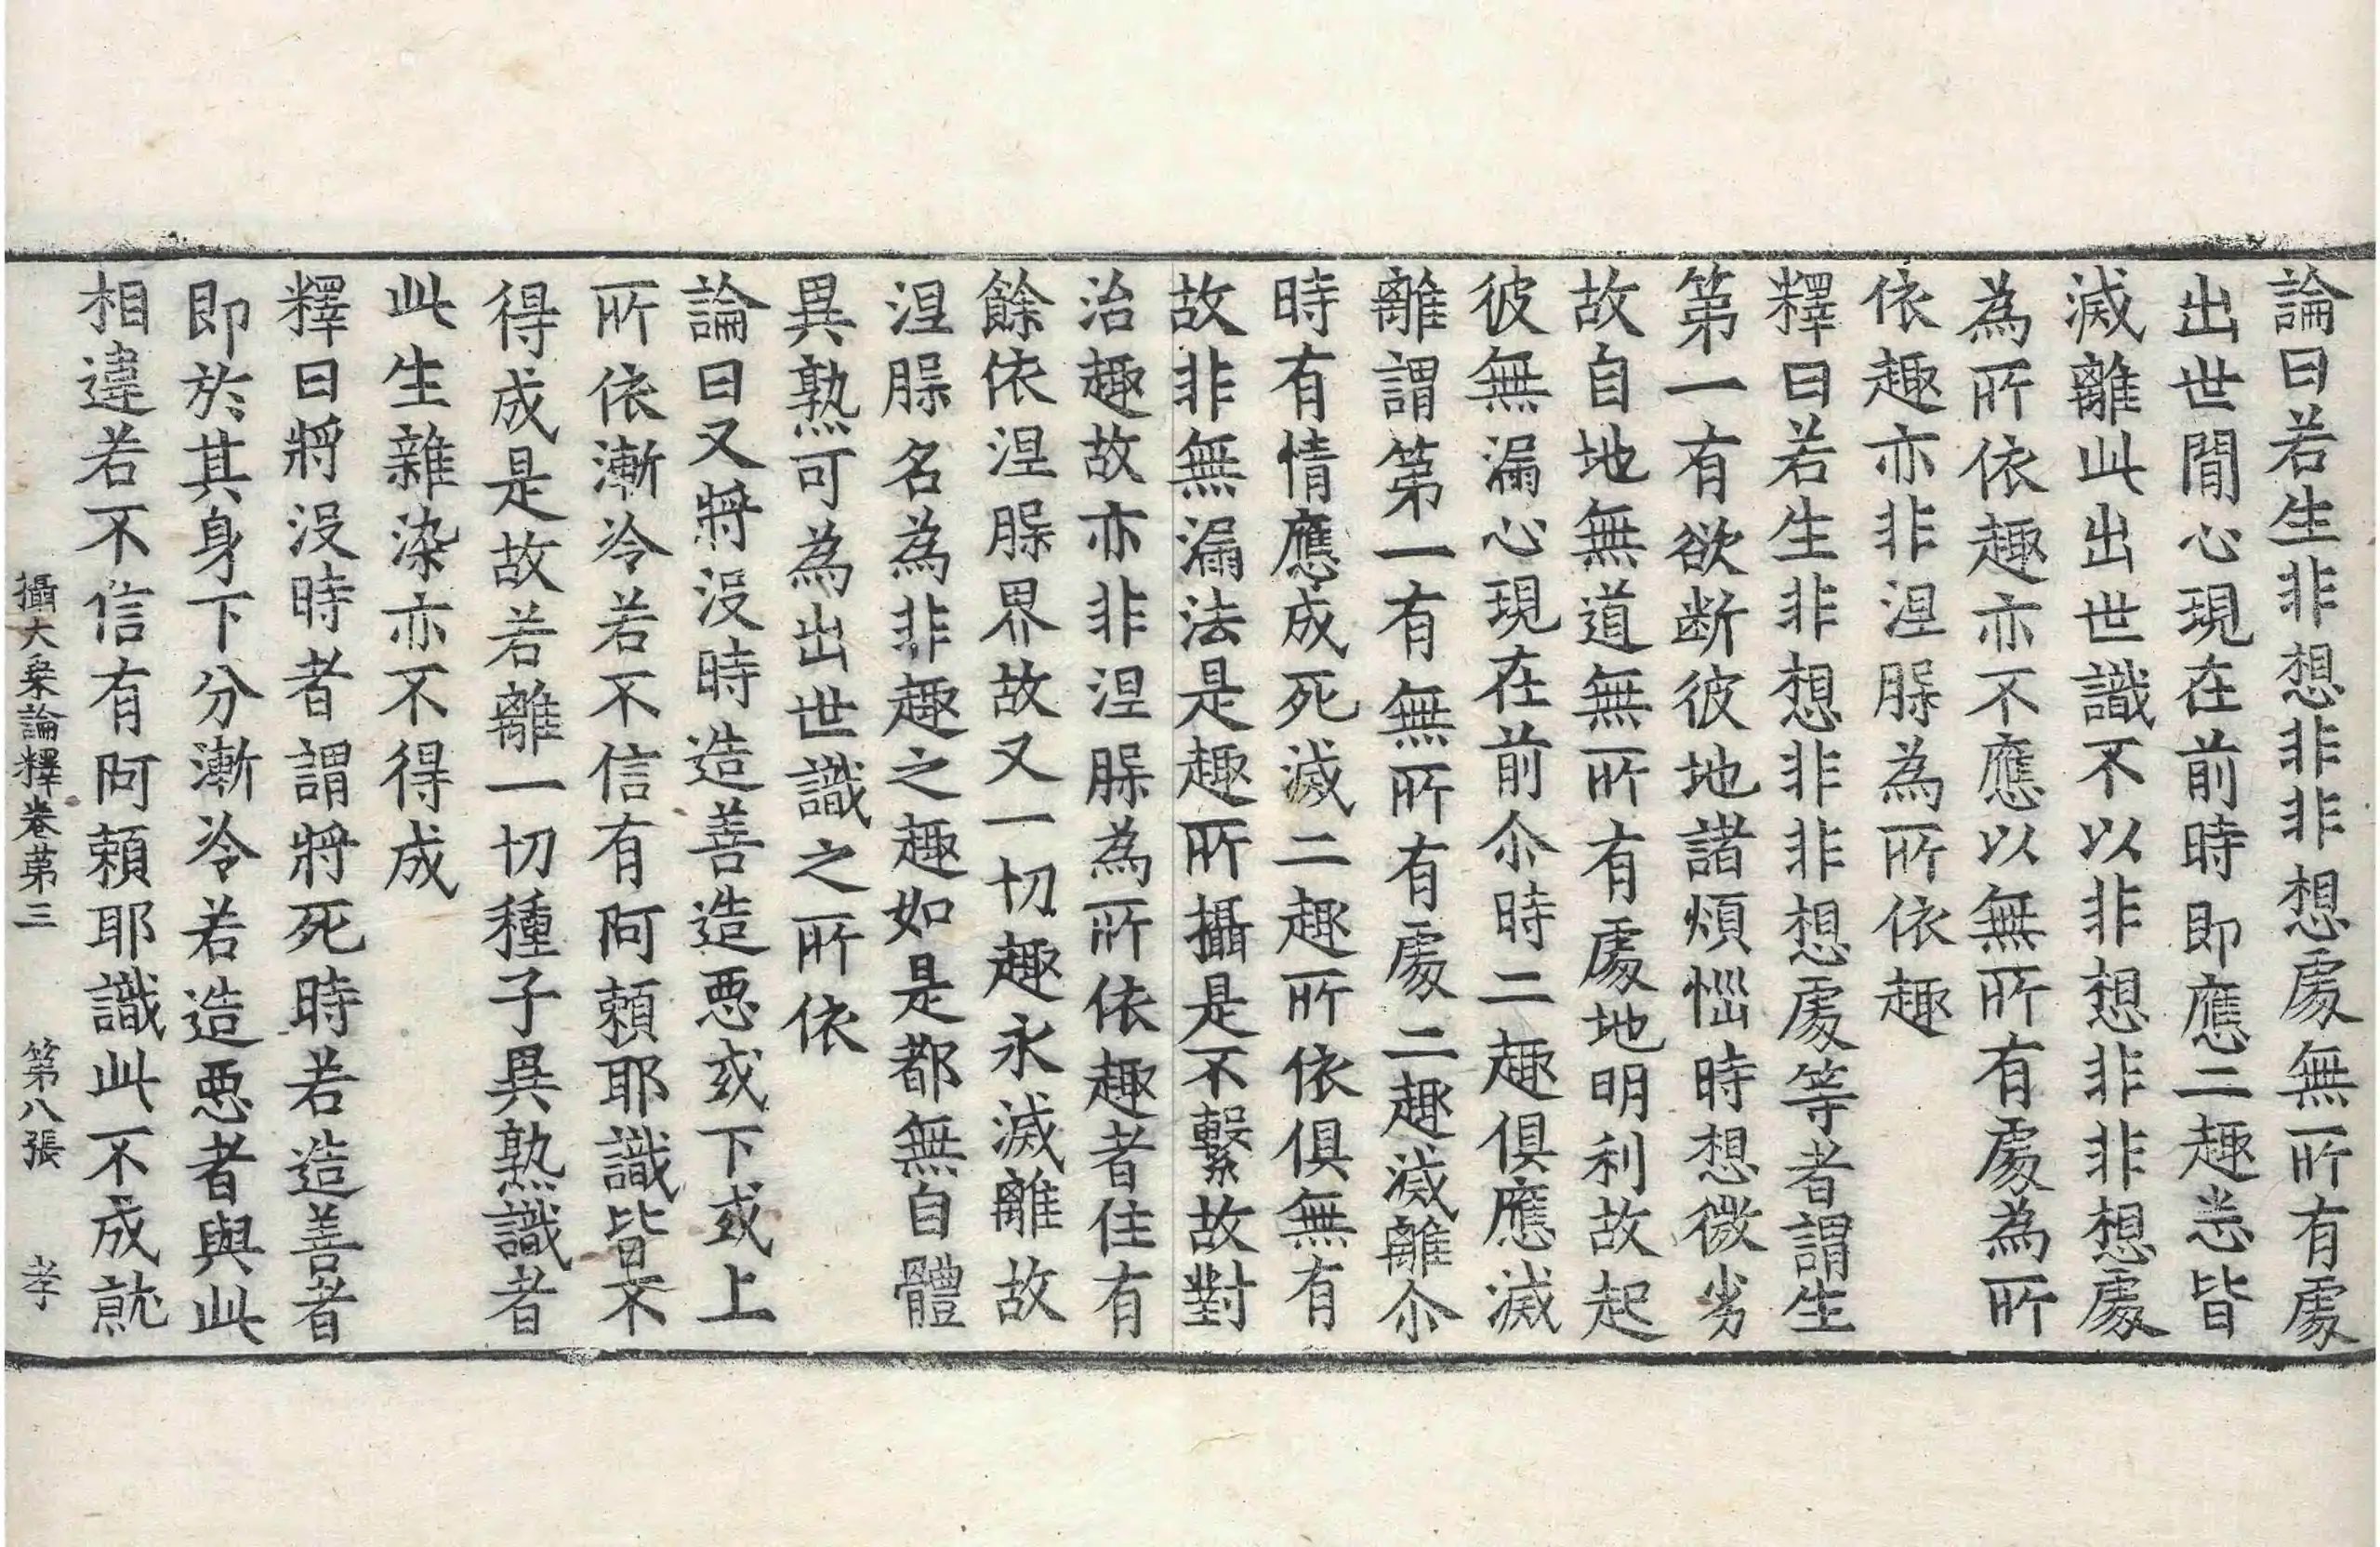 論曰若生非想非非想處無所有處
出世間心現在前時即應二趣悉皆
滅離此出世識不以非想非非想處
為所依趣亦不應以無所有處為所
依趣亦非涅脲為所依趣
釋曰若生非想非非想處等者謂生
第一有欲断彼地諸煩惱時想微劣
故自地無道無所有處地明利故起
彼無漏心現在前尒時二趣俱應滅
離謂第一有無所有處二趣滅離尒
時有情應成死滅二趣所依俱無有
故非無漏法是趣所攝是不繫故對
治趣故亦非涅脲為所依趣者住有
餘依涅脲界故又一切趣永滅離故
涅脲名為非趣之趣如是都無自體
異熟可為出世識之所依
論曰又將没時造善造惡或下或上
所依漸冷若不信有阿賴耶識皆不
得成是故若離一切種子異熟識者
此生雜染亦不得成
釋曰將没時者謂將死時若造善者
即於其身下分漸冷若造惡者與此
相違若不信有阿賴耶識此不成就
攝大乗論釋卷第三 第八張 孝